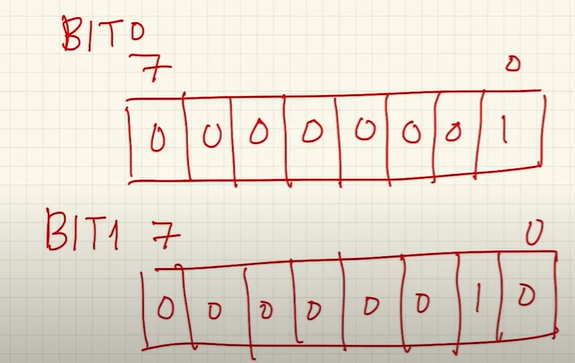 BIT0
7 0
0 0 0 0 0 0 0 1
BIT1 7 0
0 0 0 0 0 0 1 0